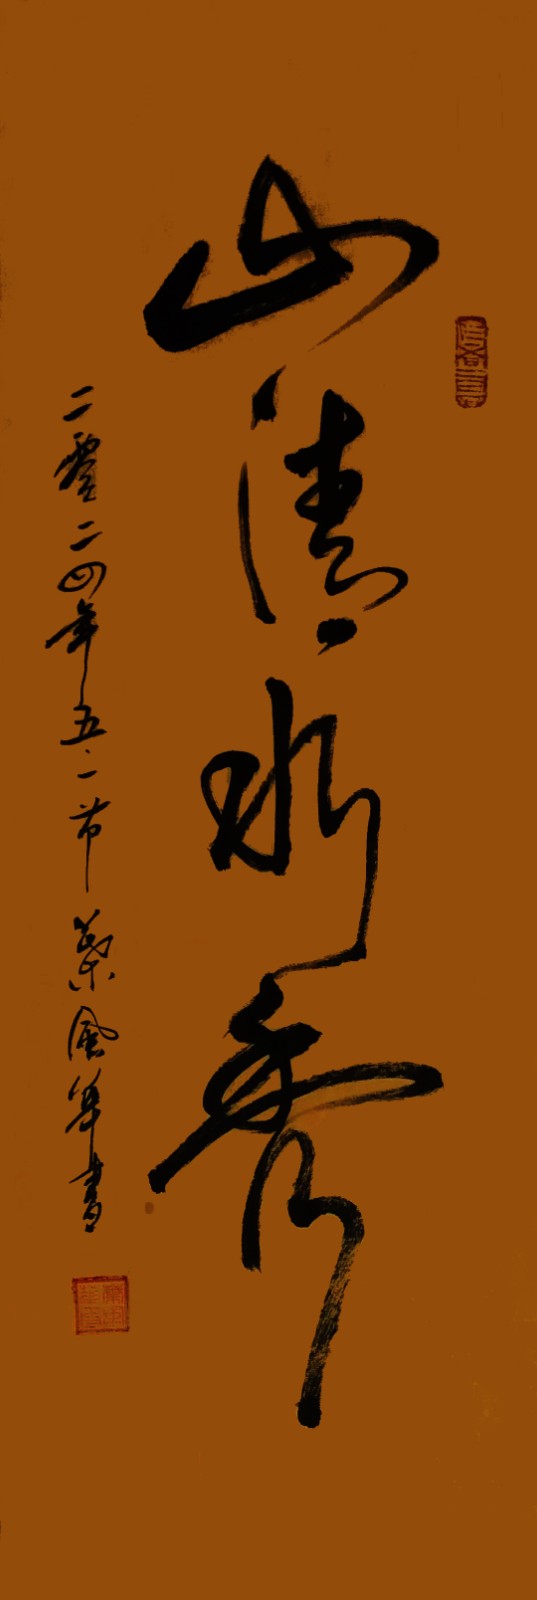 山清水秀
二零二四年五.一节叶风华书